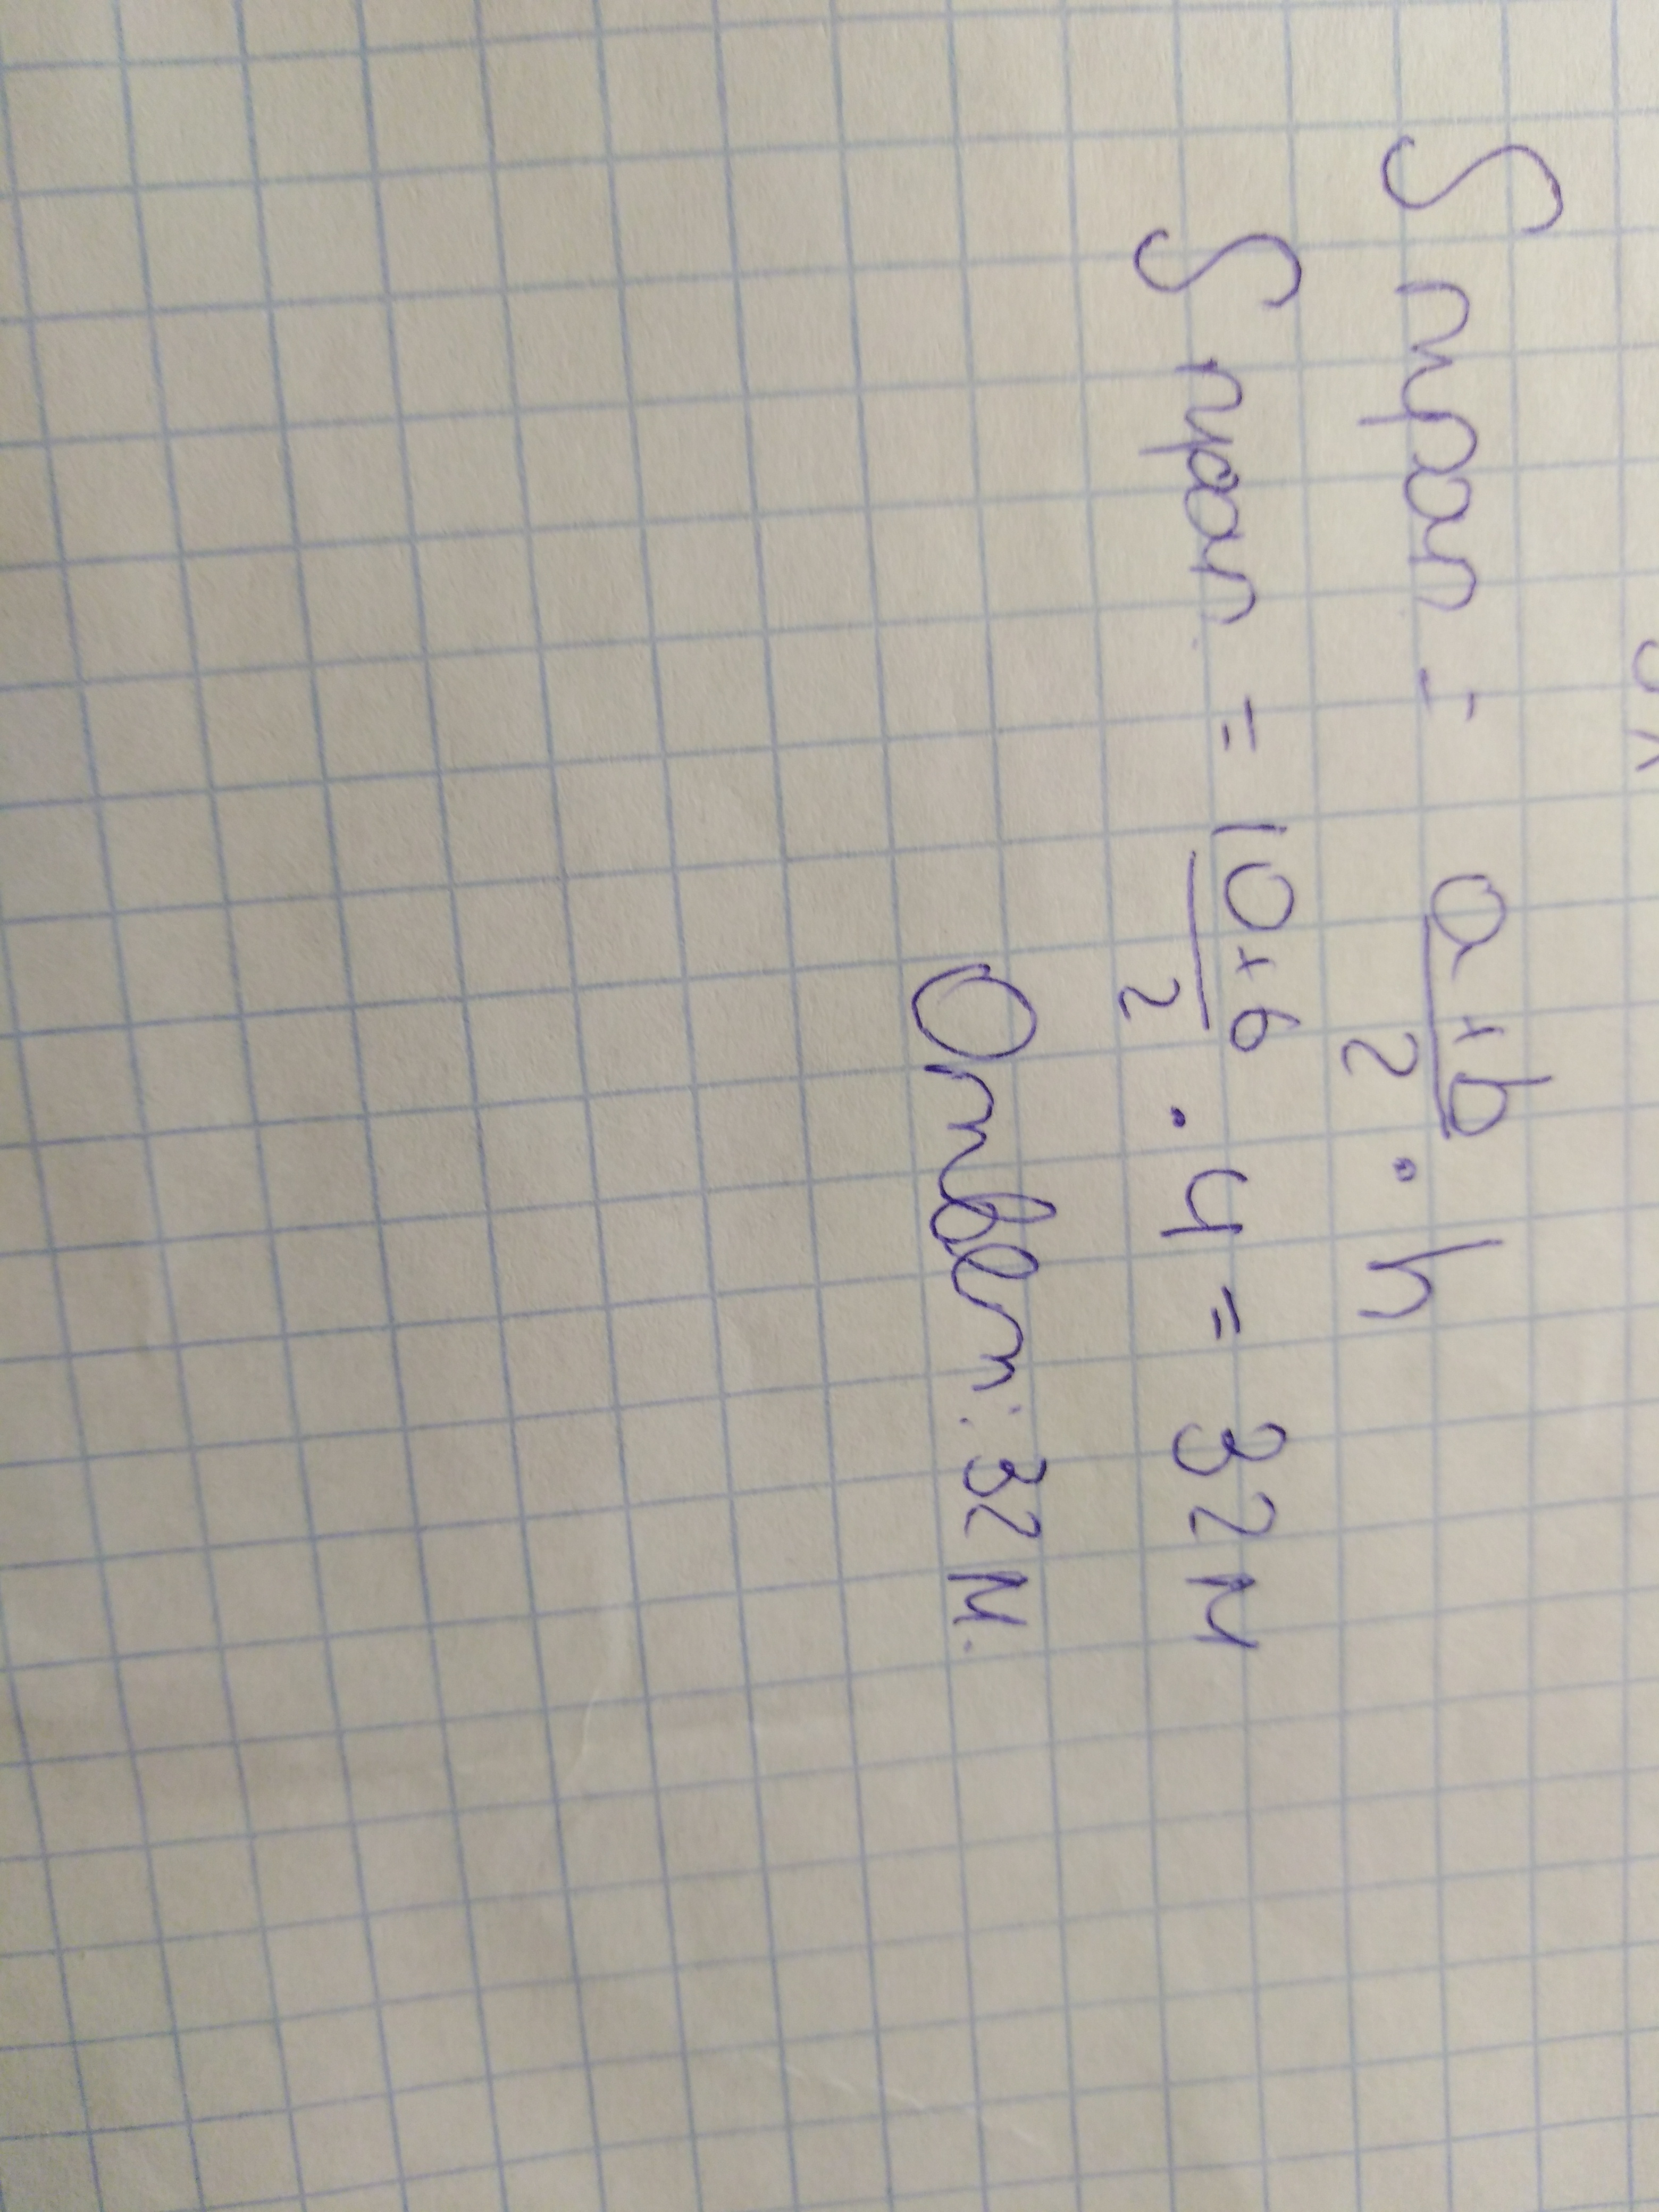 S трап = a+b/2 · h
S трап. = 10+6/2 · 4 = 32 м
Ответ: 32 м.